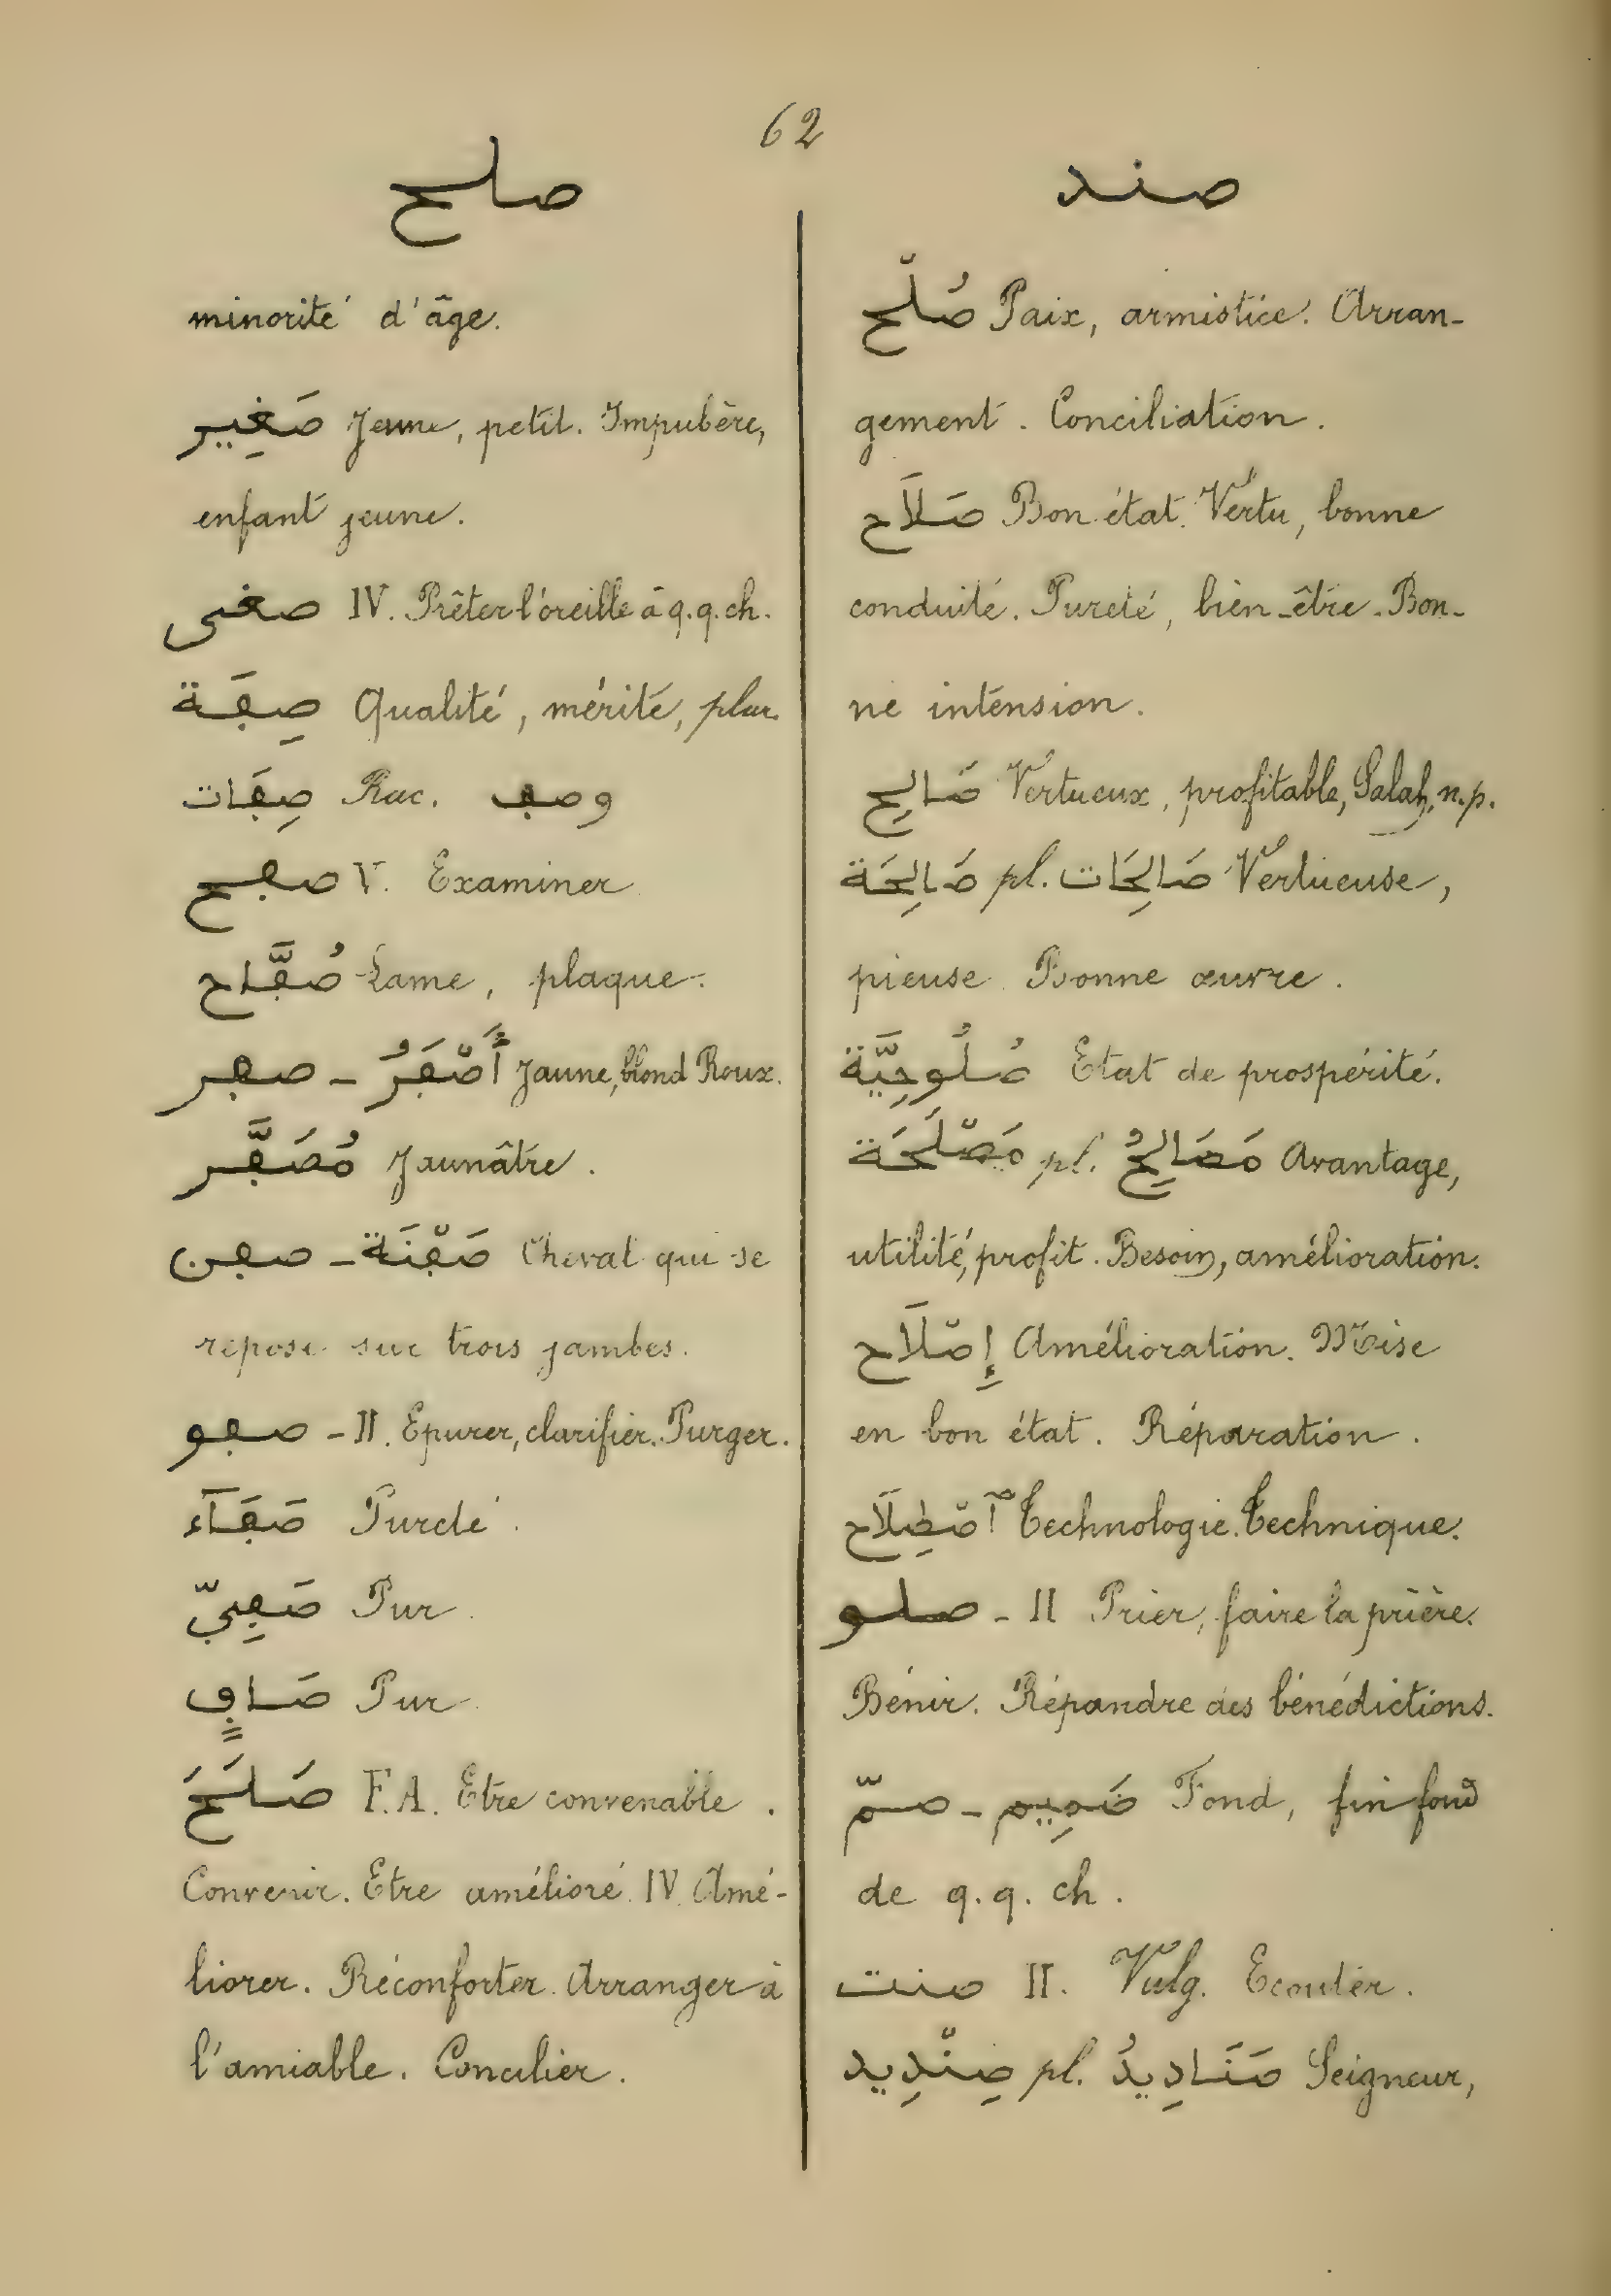 62
صلح
minorité d'âge.
صَغِير Jeune, petit. Impubère,
enfant jeune.
صغى IV. Prêter l'oreille à q.q. ch.
صِفَة Qualité, mérite, plur.
صِفَات Rac. وصف
صفح V. Examiner
صُفَّاح Lame, plaque.
صفر ـ أَصْفَرُ Jaune, blond Roux.
مُصَفَّر Jaunâtre.
صفن ـ صَفْنَة Cheval qui se
repose sur trois jambes.
صفو - II. Epurer, clarifier. Purger.
صَفَآء Pureté.
صَفِيّ Pur.
صَافٍ Pur.
صَلَحَ F.A. Etre convenable.
Convenir. Etre amélioré. IV. Amé-
liorer. Réconforter. Arranger à
l'amiable. Concilier.
صند
صُلْح Paix, armistice. Arran-
gement. Conciliation.
صَلَاح Bon état. Vertu, bonne
conduite. Pureté, bien-être. Bon-
ne intension.
صَالِح Vertueux, profitable, Salah, n.p.
صَالِحَة pl. صَالِحَات Vertueuse,
pieuse. Bonne œuvre.
صُلُوحِيَّة Etat de prospérité.
مَصْلَحَة pl. مَصَالِحُ Avantage,
utilité, profit. Besoin, amélioration.
إِصْلَاح Amélioration. Mise
en bon état. Réparation.
ٱصْطِلَاح Technologie. Technique.
صلو - II Prier, faire la prière.
Bénir. Répandre des bénédictions.
صمّ ـ صَمِيم Fond, fin fond
de q.q. ch.
صنت II. Vulg. Ecouter.
صِنْدِيد pl. صَنَادِيدُ Seigneur,